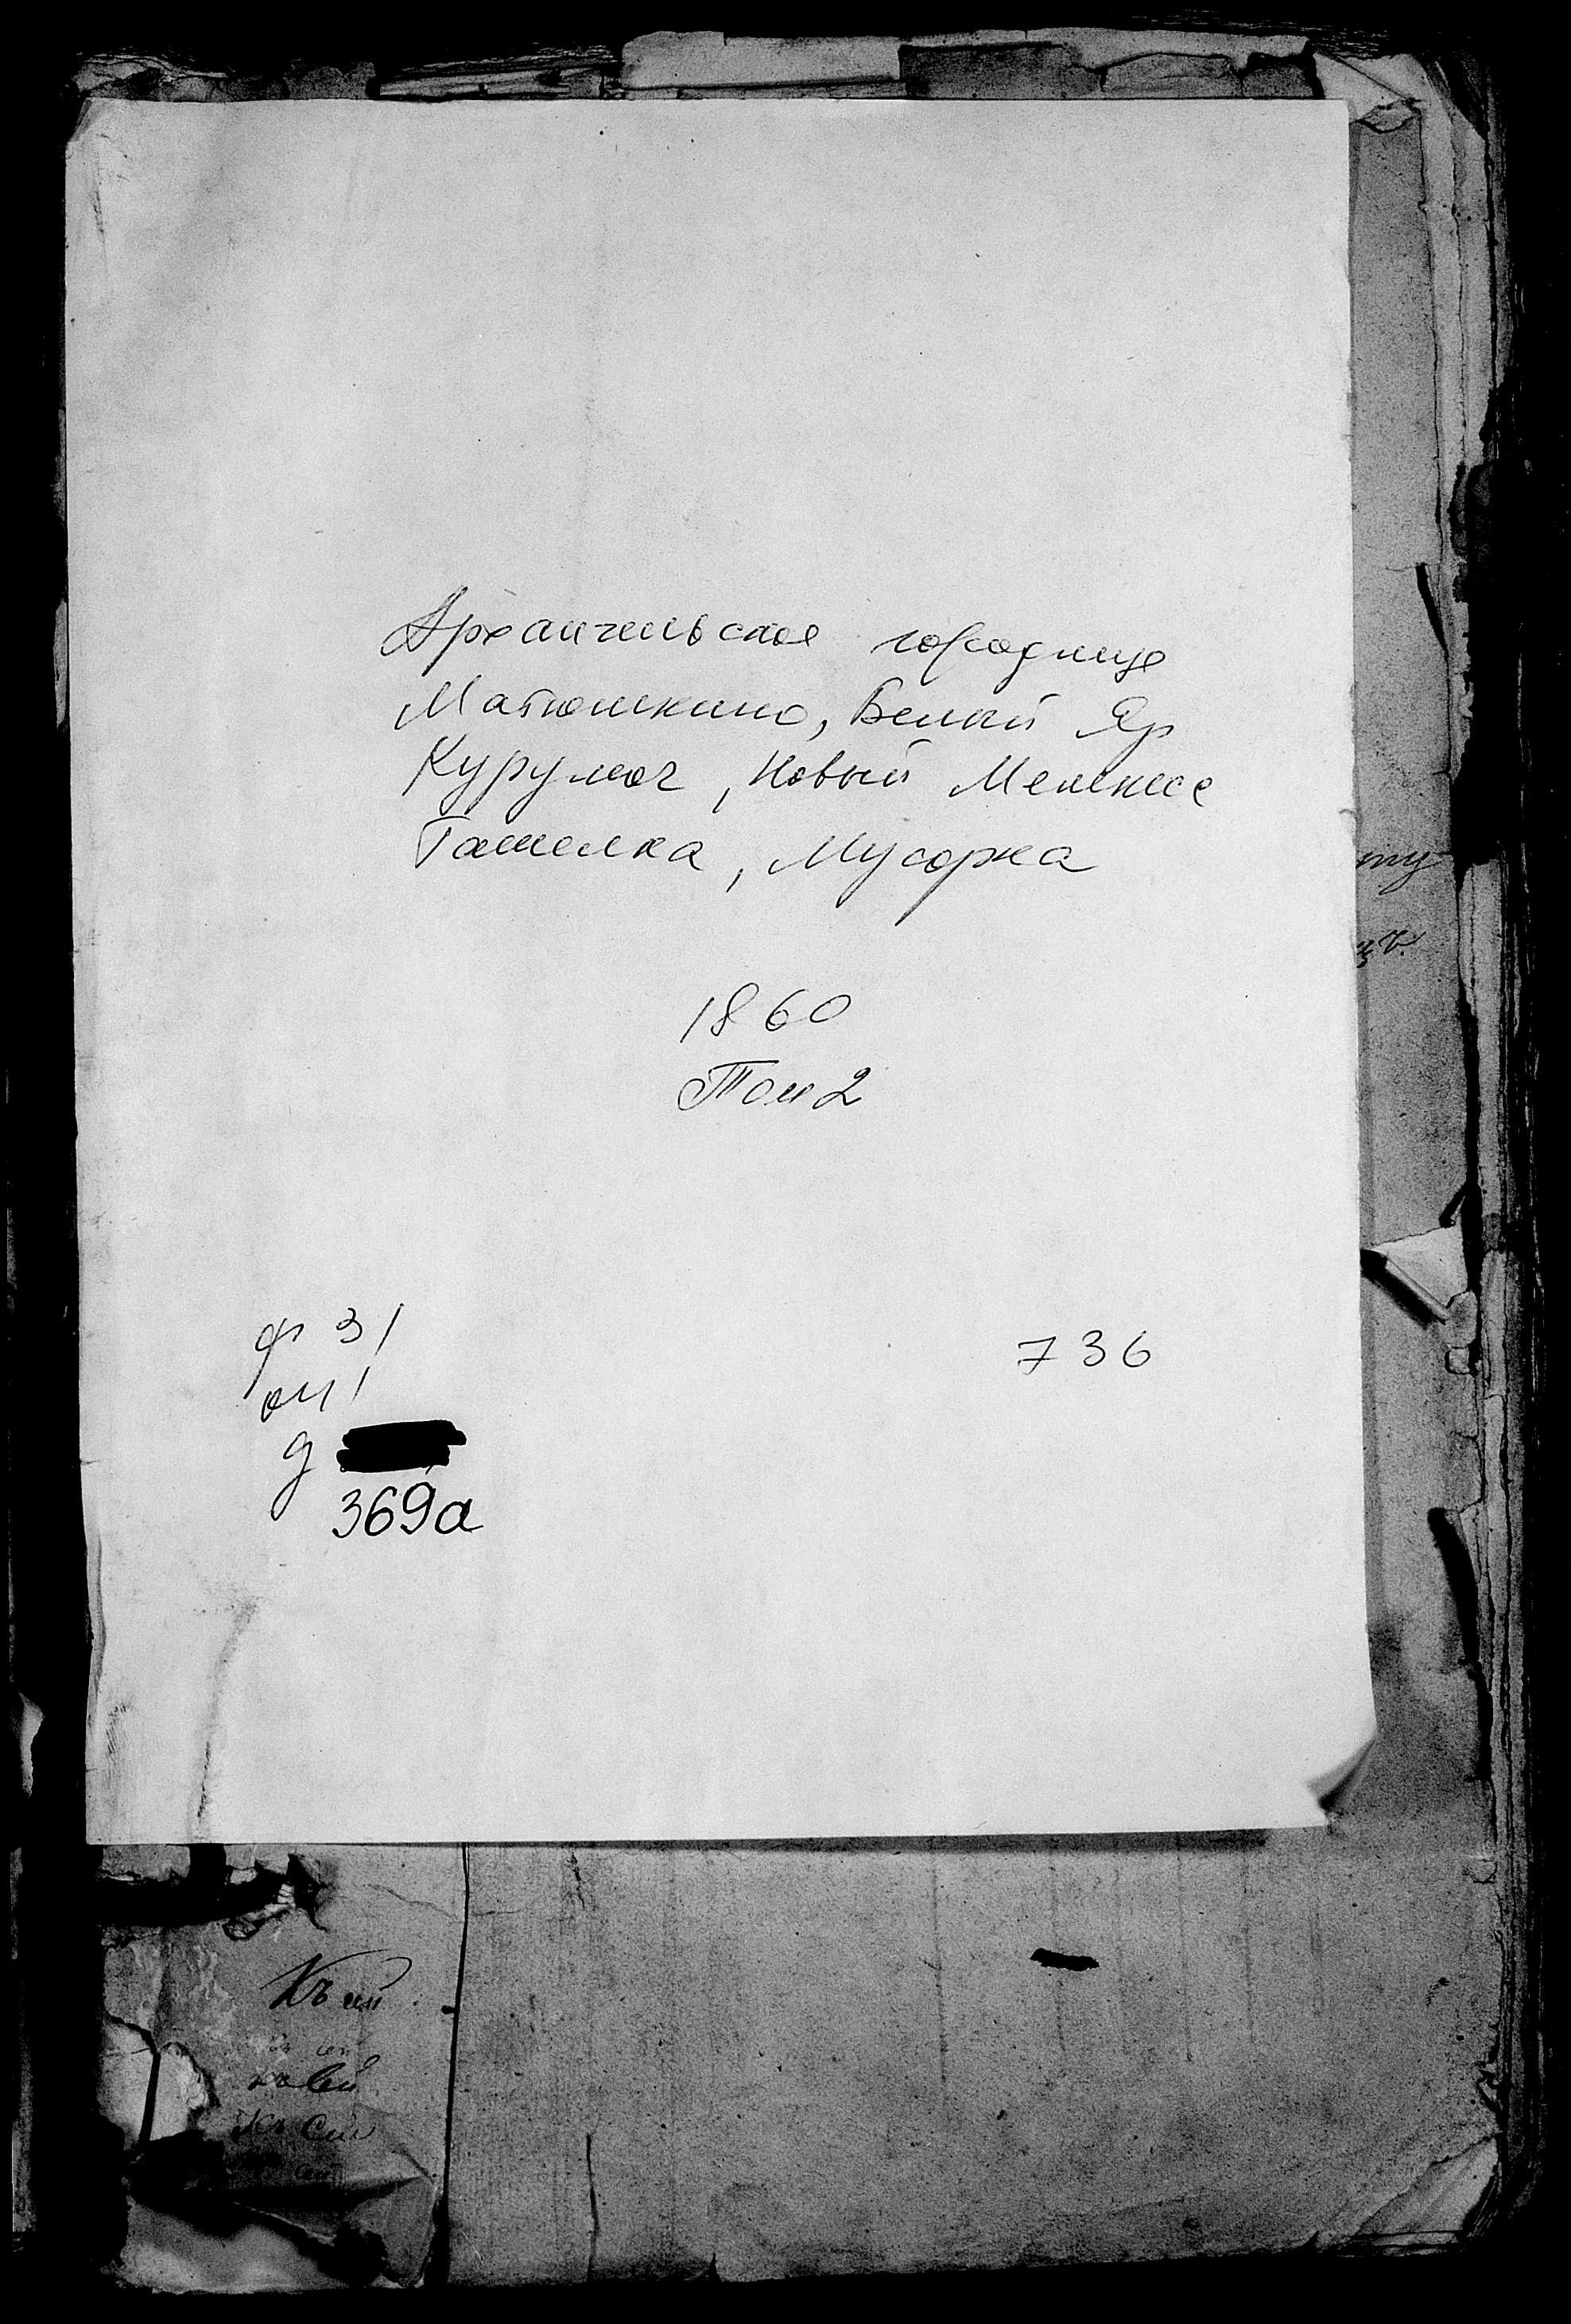 Архангельское городище
Матюшкино, Белый Яр
Курумоч, Новый Мелекесс
Ташелка, Мусорка
1860
Том 2
ф 31
оп 1
736
д
369а
ту
Къ
Къ